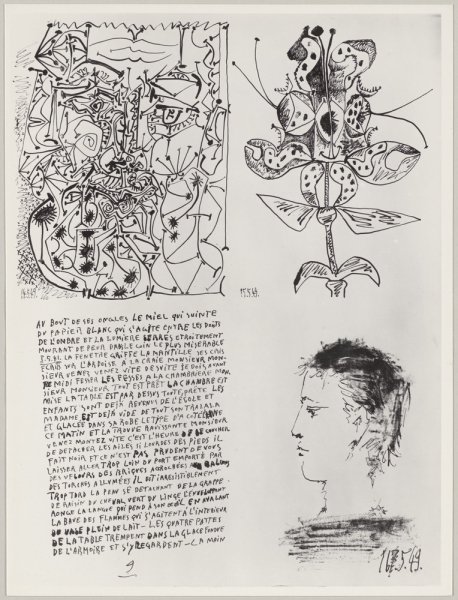 14.5.49.
15.5.49.
AU BOUT DE SES ONGLES LE MIEL QUI SUINTE
DU PAPIER BLANC QUI S'AGITE ENTRE LES DOIGTS
DE L'ONDRE ET LA LUMIERE SERRES ETROITEMENT
MOURANT DE PEUR DANS LE COIN LE PLUS MISERABLE
LA FENETRE GRIFFE LA MANTILLE SES CRIS
ECRITS SUR L'ARDOISE A LA CRAIE MONSIEUR MON
SIEUR VENEZ VENEZ VITE DE SUITE JE DOIS AVANT
MIDI FESSER LES FESSES A LA CHAMBRIERE MON
SIEUR MONSIEUR TOUT EST PRET LA CHAMBRE EST
MISE LA TABLE EST PAR DESSUS TOUTE PRETE LES
ENFANTS SONT DEJA REVENUS DE L'ECOLE ET
MADAME EST DEJA VIDE DE TOUT SON TRALALA
ET GLACEE DANS SA ROBE LE TYPE D'A COTE
CE MATIN ET LA TROUVE RAVISSANTE MONSIEUR
VENEZ MONTEZ VITE C'EST L'HEURE DE SE COUCHER
DE DEPECHER LES AILES SI LOURDES DES PIEDS IL
FAIT NOIR ET CE N'EST PAS PRUDENT DE VOUS
LAISSER ALLER TROP LOIN DU PORT EMPORTE PAR
DES VELOURS DES BRIQUES ACCROCHEES AU BALCON
DES TORCHES ALLUMEES IL DOIT IRRESISTIBLEMENT
TROP TARD LA PEAU SE DETACHANT DE LA GRAPPE
DE RAISIN DU CHEVAL VERT DU LINGE L'ENVELOPPANT
RONGE LA LANGUE QUI PEND A SON OEIL EN AVALANT
LA BAVE DES FLAMMES QUI S'AGITENT A L'INTERIEUR
DU VASE PLEIN DE LAIT – LES QUATRE PATTES
DE LA TABLE TREMPENT DANS LA GLACE FONDUE
DE L'ARMOIRE ET S'Y REGARDENT – LA MAIN
9
16.5.49.